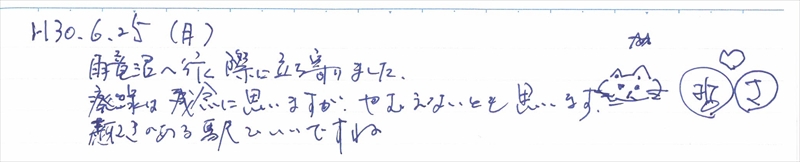 H30.6.25 (月)
雨竜沼へ行く際に立ち寄りました。
廃線は残念に思いますが、やむえないとも思います。
趣きのある駅でいいですね